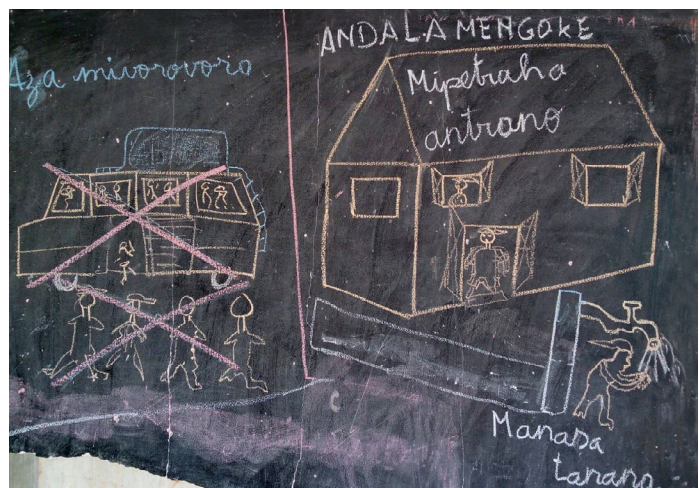 Aza mivorovoro
ANDALA MENGOKE
Mipetraha
antrano
Manasa
tanana